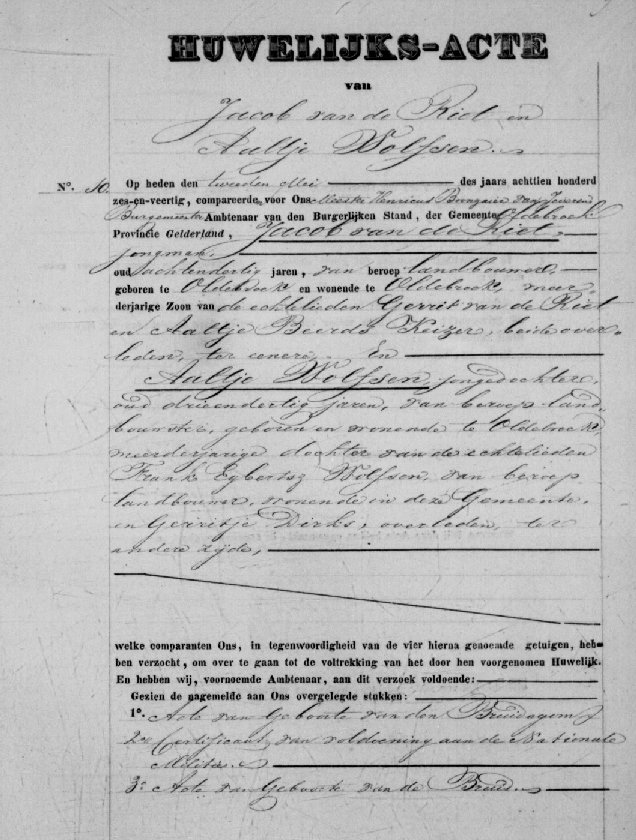 HUWELIJKS-ACTE
van
Jacob van de Riet en
Aaltje Wolfsen.
N°. 10. Op heden den tweeden Mei des jaars achttien honderd
zes-en-veertig, compareerde voor Ons Meester Henricus van
Burgemeester Ambtenaar van den Burgerlijken Stand, der Gemeente Oldebroek
Provincie Gelderland, Jacob van de Riet
jongman,
oud achtendertig jaren, van beroep landbouwer,
geboren te Oldebroek en wonende te Oldebroek, meer
derjarige Zoon van de echtelieden Gerrit van de Riet
en Aaltje Beerds Keizer, beide over
leden, ter eenere, En
Aaltje Wolfsen jongedochter,
oud drieendertig jaren, van beroep land
bouwster, geboren en wonende te Oldebroek,
meerderjarige dochter van de echtelieden
Frank Egbertsz Wolfsen, van beroep
landbouwer, wonende in deze Gemeente,
en Gerritje Dirks, overleden, ter
andere zijde,
welke comparanten Ons, in tegenwoordigheid van de vier hierna genoemde getuigen, heb-
ben verzocht, om over te gaan tot de voltrekking van het door hen voorgenomen Huwelijk.
En hebben wij, voornoemde Ambtenaar, aan dit verzoek voldoende:
Gezien de nagemelde aan Ons overgelegde stukken:
1°. Acte van Geboorte van den Bruidegom
2e Certificaat van voldoening aan de Nationale
Militie.
3e Acte van Geboorte van de Bruid.